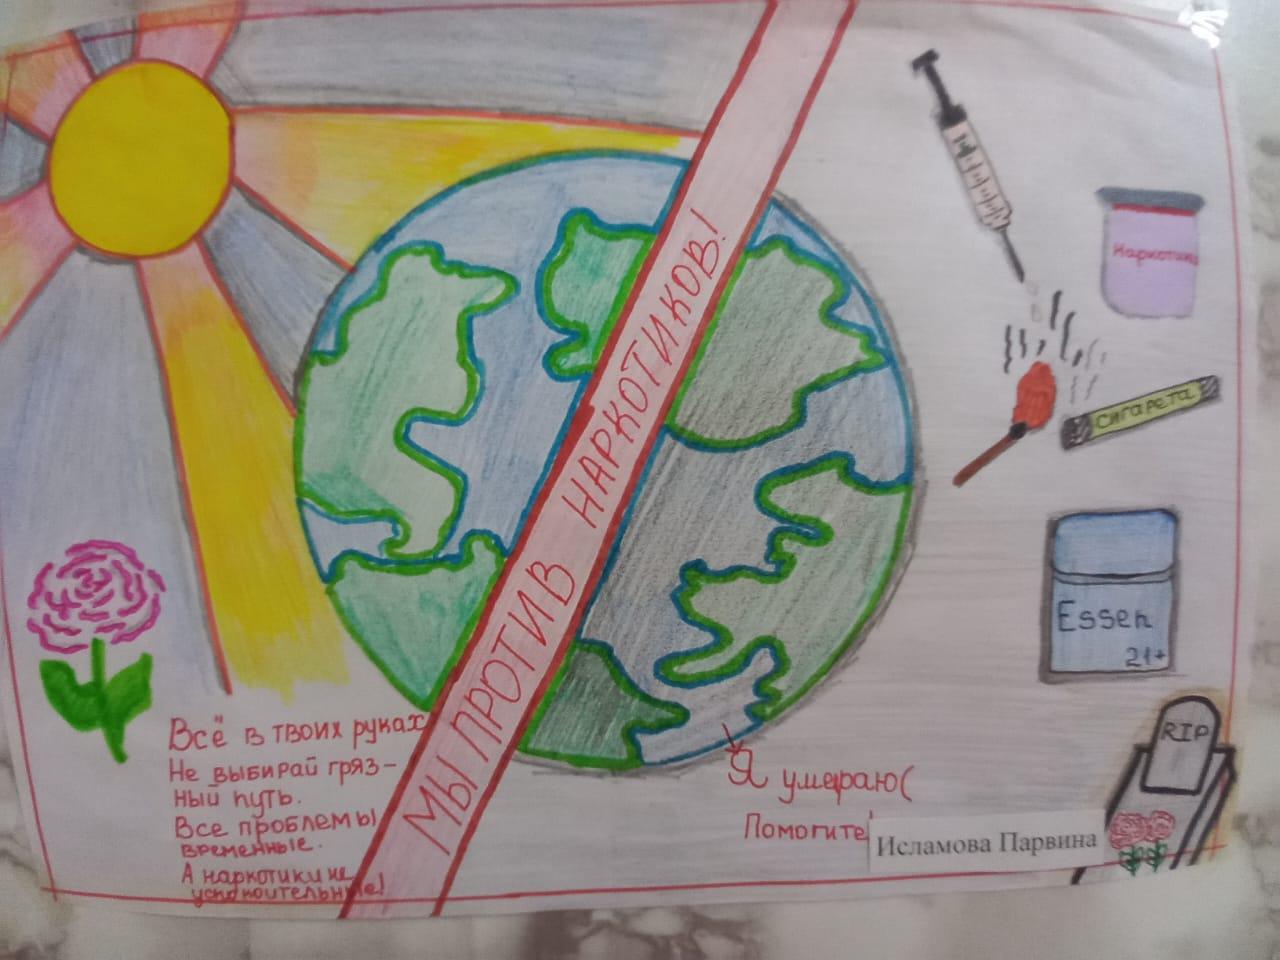 МЫ ПРОТИВ НАРКОТИКОВ!
Наркотики
сигарета
Essen
21+
RIP
Всё в твоих руках
Не выбирай гряз-
ный путь.
Все проблемы
временные.
А наркотики не
успокоительные!
Я умираю(
Помогите!
Исламова Парвина